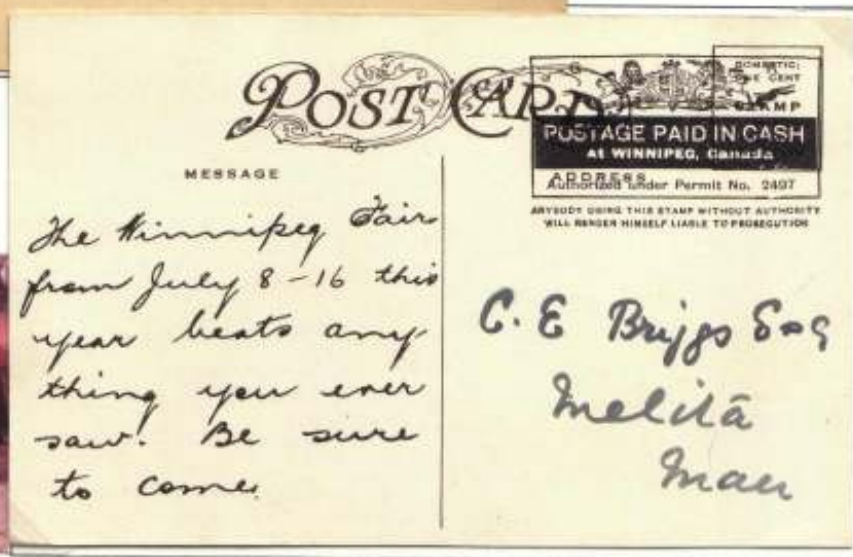 POST CARD
DOMESTIC:
ONE CENT
STAMP
POSTAGE PAID IN CASH
At WINNIPEG, Canada
ADDRESS
Authorized under Permit No. 2497
ANYBODY USING THIS STAMP WITHOUT AUTHORITY
WILL RENDER HIMSELF LIABLE TO PROSECUTION
MESSAGE
The Winnipeg Fair
from July 8-16 this
year beats any
thing you ever
saw! Be sure
to come
C. E Briggs Esq
Melita
Man